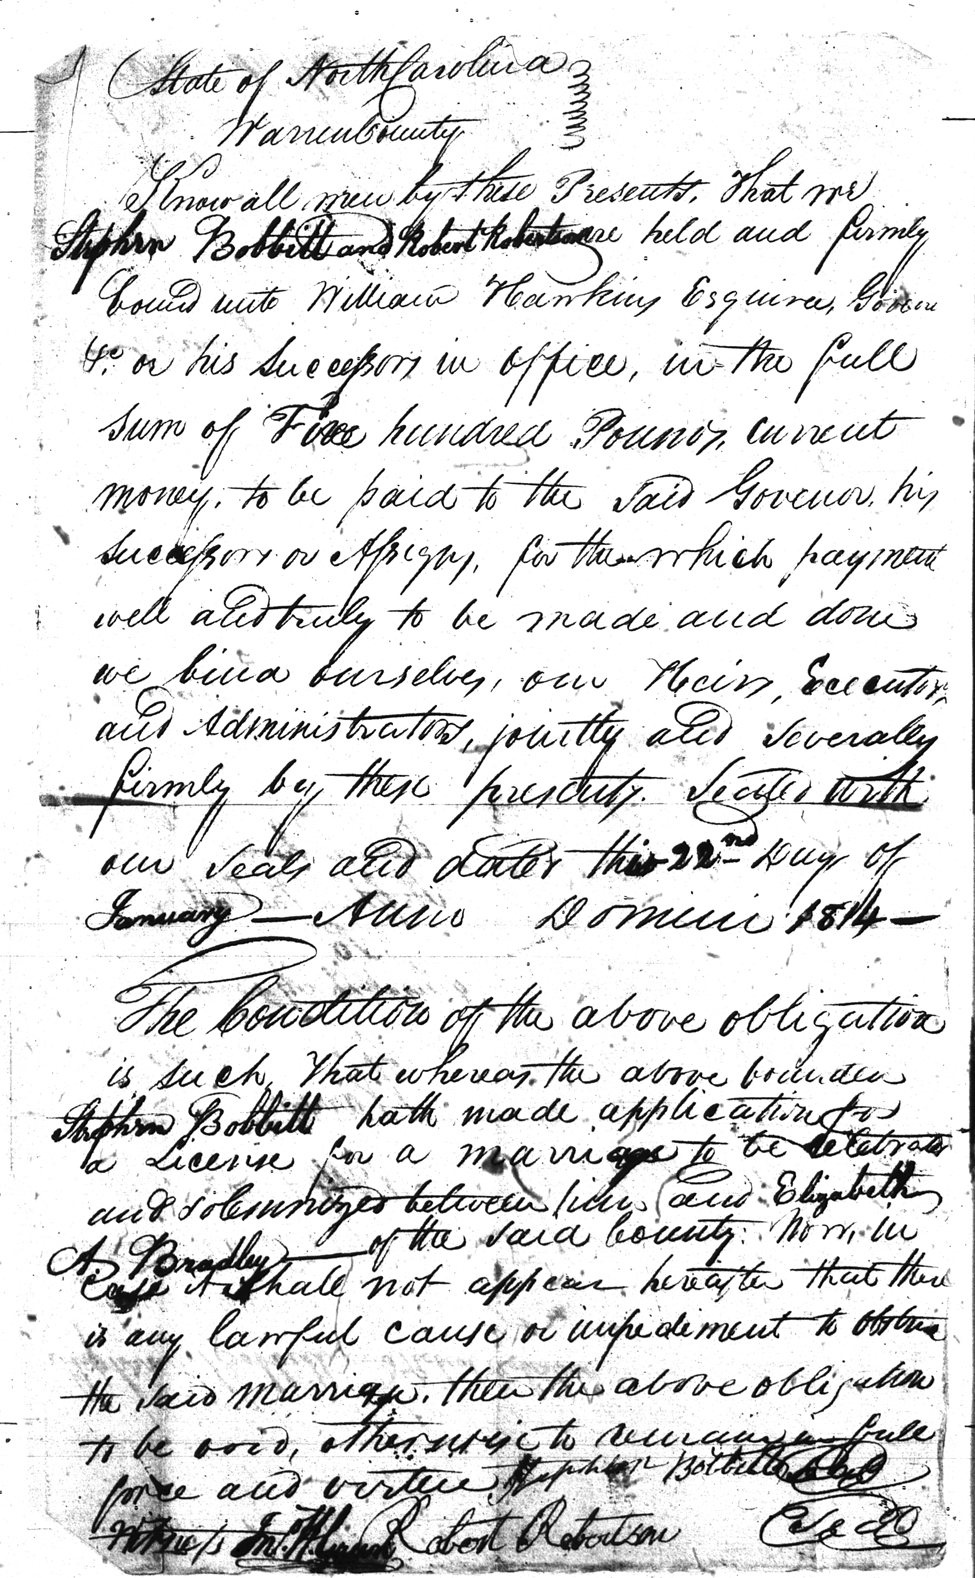 State of North Carolina
Warren County
Know all men by these Presents, That we
Stephen Bobbitt and Robert Robertson are held and firmly
bound unto William Hawkins Esquire, Govern
&c. or his successors in office, in the full
sum of Five hundred Pounds, current
money, to be paid to the said Govenor, his
successors or Assigns, for the which payment
well and truly to be made and done
we bind ourselves, our Heirs, Executors,
and Administrators, jointly and severally
firmly by these presents. Sealed with
our seals and dated this 22nd Day of
January — Anno Domini 1814 —
The Condition of the above obligation
is such, That whereas the above bounden
Stephen Bobbitt hath made application for
a License for a marriage to be Celebrated
and solemnized between him and Elizabeth
A. Bradley — of the said County. Now, in
Case it shall not appear hereafter that there
is any lawful cause or impediment to obstruc
the said marriage, then the above obligation
to be void, otherwise to remain in full
force and virtue Stephen Bobbitt Seal
Witness Robert Robertson Seal